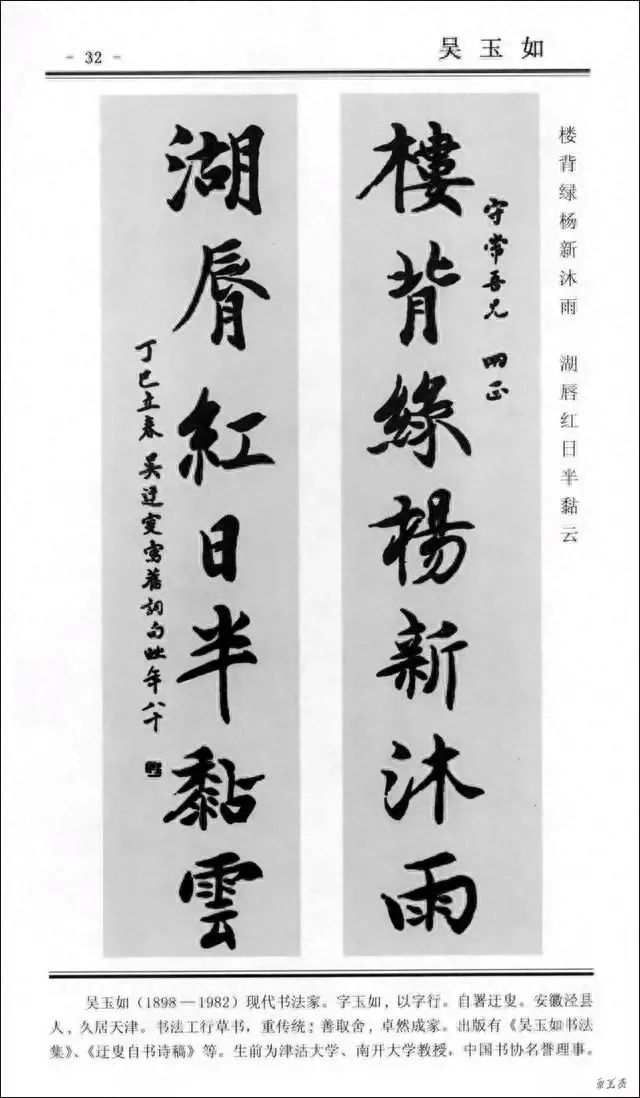 - 32 -
吴玉如
楼背绿杨新沐雨 湖唇红日半黏云
樓背綠楊新沐雨
守常吾兄 两正
湖脣紅日半黏雲
丁巳立春 吴迂叟寫舊詞句時年八十
吴玉如（1898—1982）现代书法家。字玉如，以字行。自署迂叟。安徽泾县
人，久居天津。书法工行草书，重传统；善取舍，卓然成家。出版有《吴玉如书法
集》、《迂叟自书诗稿》等。生前为津沽大学、南开大学教授，中国书协名誉理事。